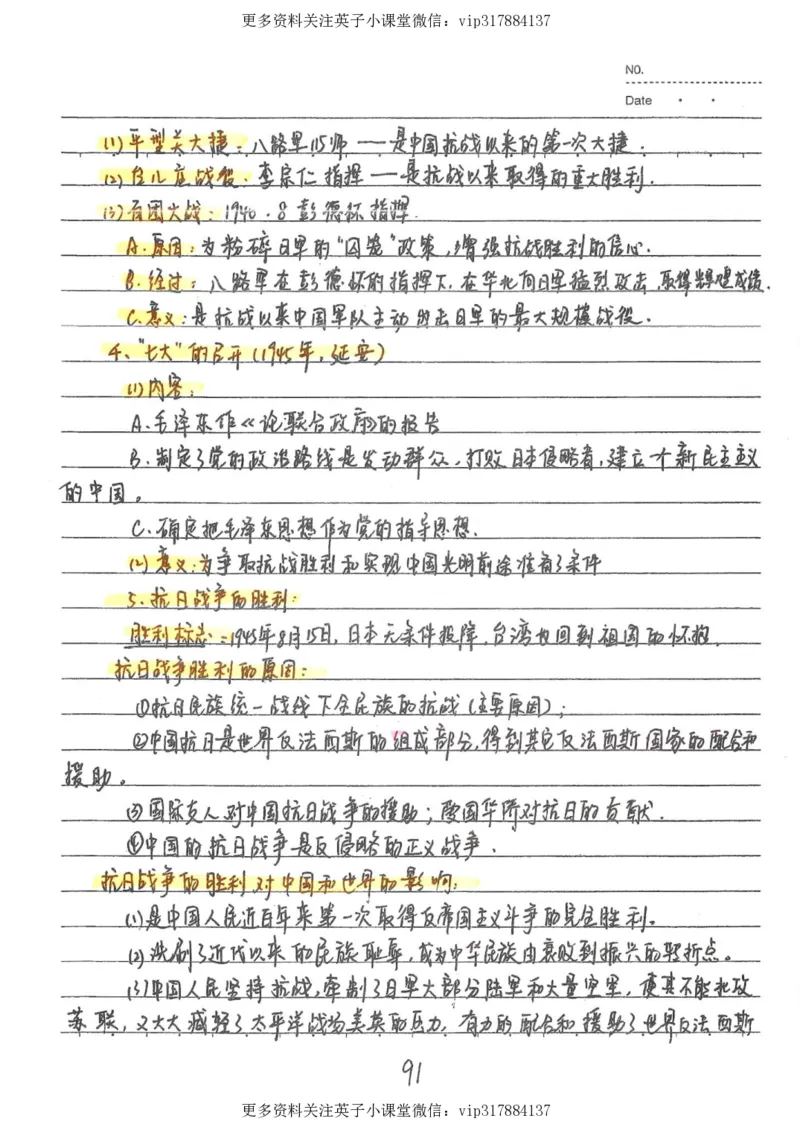 更多资料关注英子小课堂微信：vip317884137
NO.
Date
(1)平型关大捷：八路军115师——是中国抗战以来的第一次大捷．
(2)台儿庄战役．李宗仁指挥——是抗战以来取得的重大胜利．
(3)百团大战：1940．8 彭德怀指挥．
A．原因：为粉碎日军的“囚笼”政策，增强抗战胜利的信心．
B．经过：八路军在彭德怀的指挥下，在华北向日军猛烈攻击，取得辉煌成绩．
C．意义：是抗战以来中国军队主动出击日军的最大规模战役．
4、“七大”的召开(1945年，延安)
(1)内容：
A．毛泽东作《论联合政府》的报告
B．制定了党的政治路线是发动群众，打败日本侵略者，建立个新民主主义
的中国。
C．确定把毛泽东思想作为党的指导思想．
(2)意义：为争取抗战胜利和实现中国光明前途准备了条件
5、抗日战争的胜利：
胜利标志：1945年8月15日，日本无条件投降，台湾也回到祖国的怀抱．
抗日战争胜利的原因：
①抗日民族统一战线下全民族的抗战(主要原因)；
②中国抗日是世界反法西斯的组成部分，得到其它反法西斯国家的配合和
援助。
③国际友人对中国抗日战争的援助；爱国华侨对抗日的贡献．
④中国的抗日战争是反侵略的正义战争．
抗日战争的胜利对中国和世界的影响：
(1)是中国人民近百年来第一次取得反帝国主义斗争的完全胜利。
(2)洗刷了近代以来的民族耻辱，成为中华民族由衰败到振兴的转折点。
(3)中国人民坚持抗战，牵制了日军大部分陆军和大量空军，使其不能北攻
苏联，又大大减轻了太平洋战场美英的压力，有力的配合和援助了世界反法西斯
91
更多资料关注英子小课堂微信：vip317884137